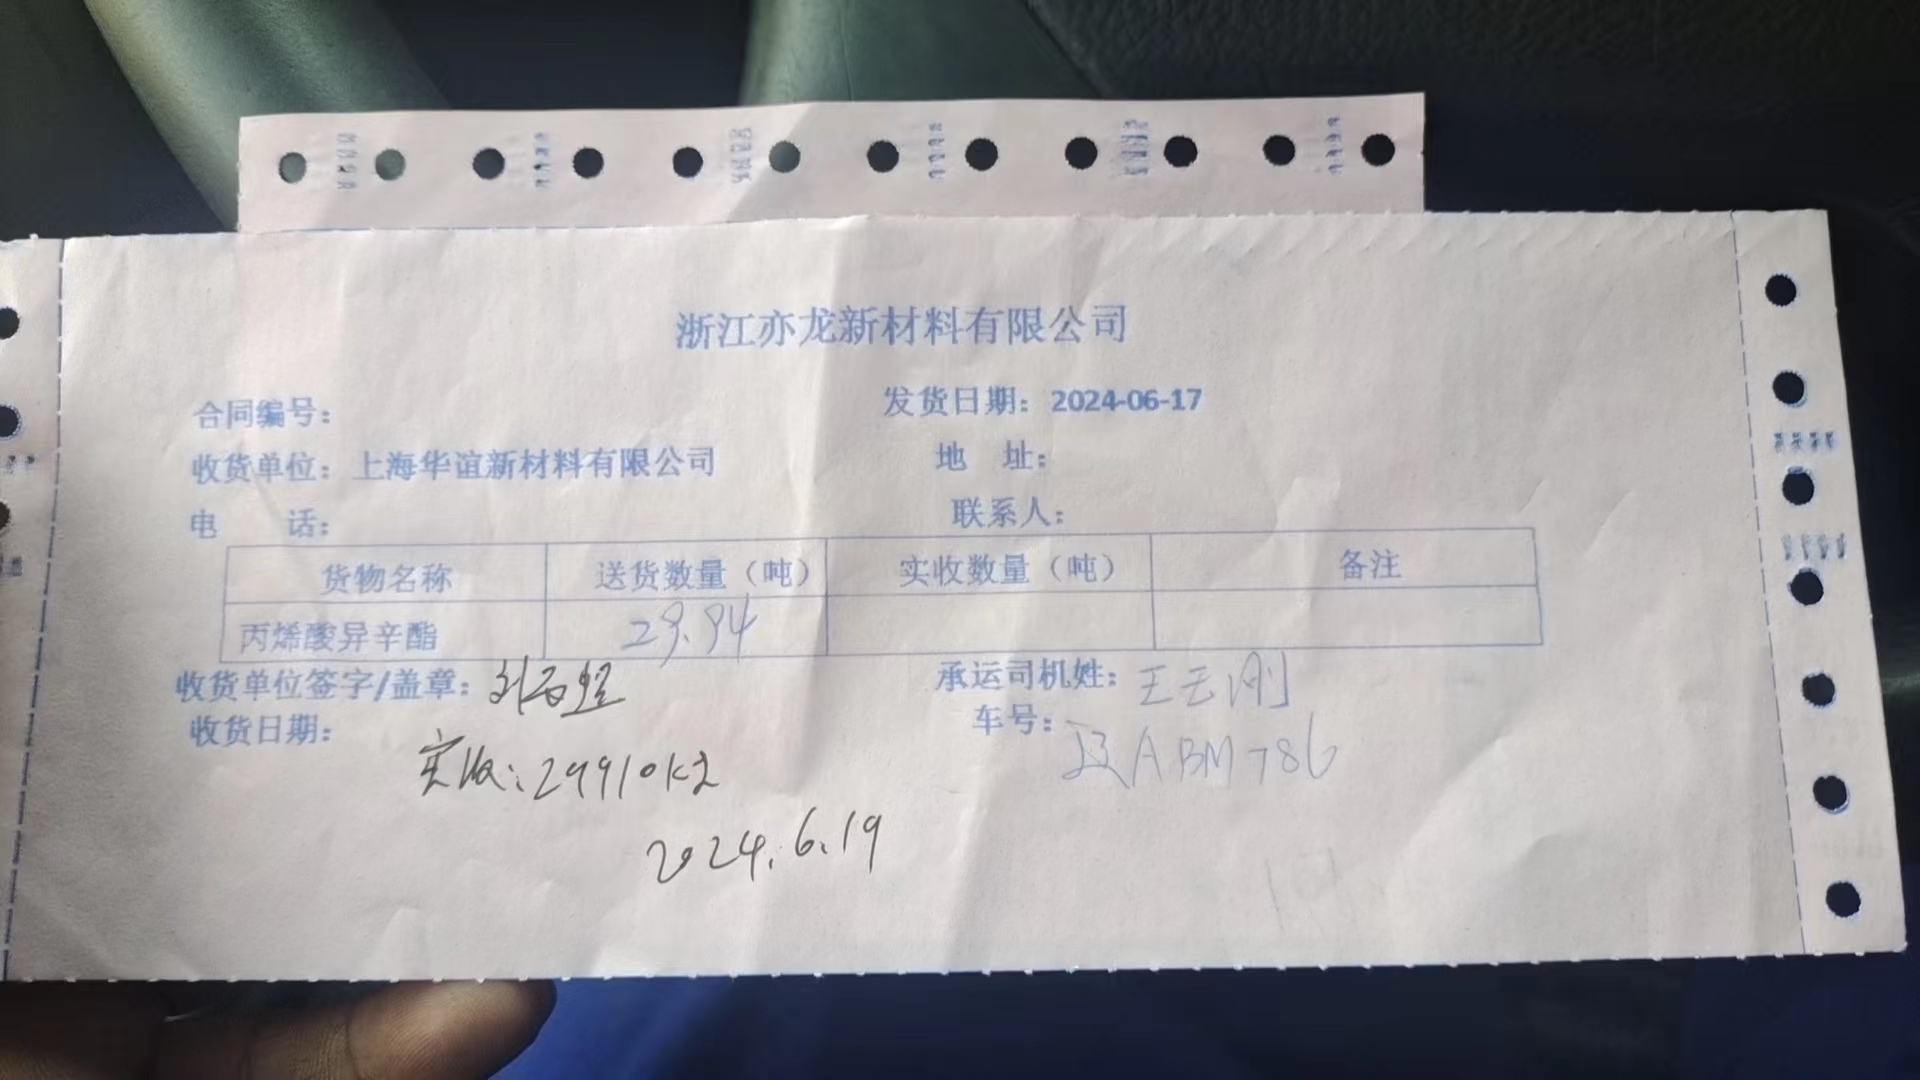 浙江亦龙新材料有限公司
合同编号： 发货日期：2024-06-17
收货单位：上海华谊新材料有限公司 地 址：
电 话： 联系人：
货物名称 送货数量（吨） 实收数量（吨） 备注
丙烯酸异辛酯 29.94
收货单位签字/盖章： 承运司机姓：
收货日期： 车号：
ABM786
实收：29910kg
2024.6.19